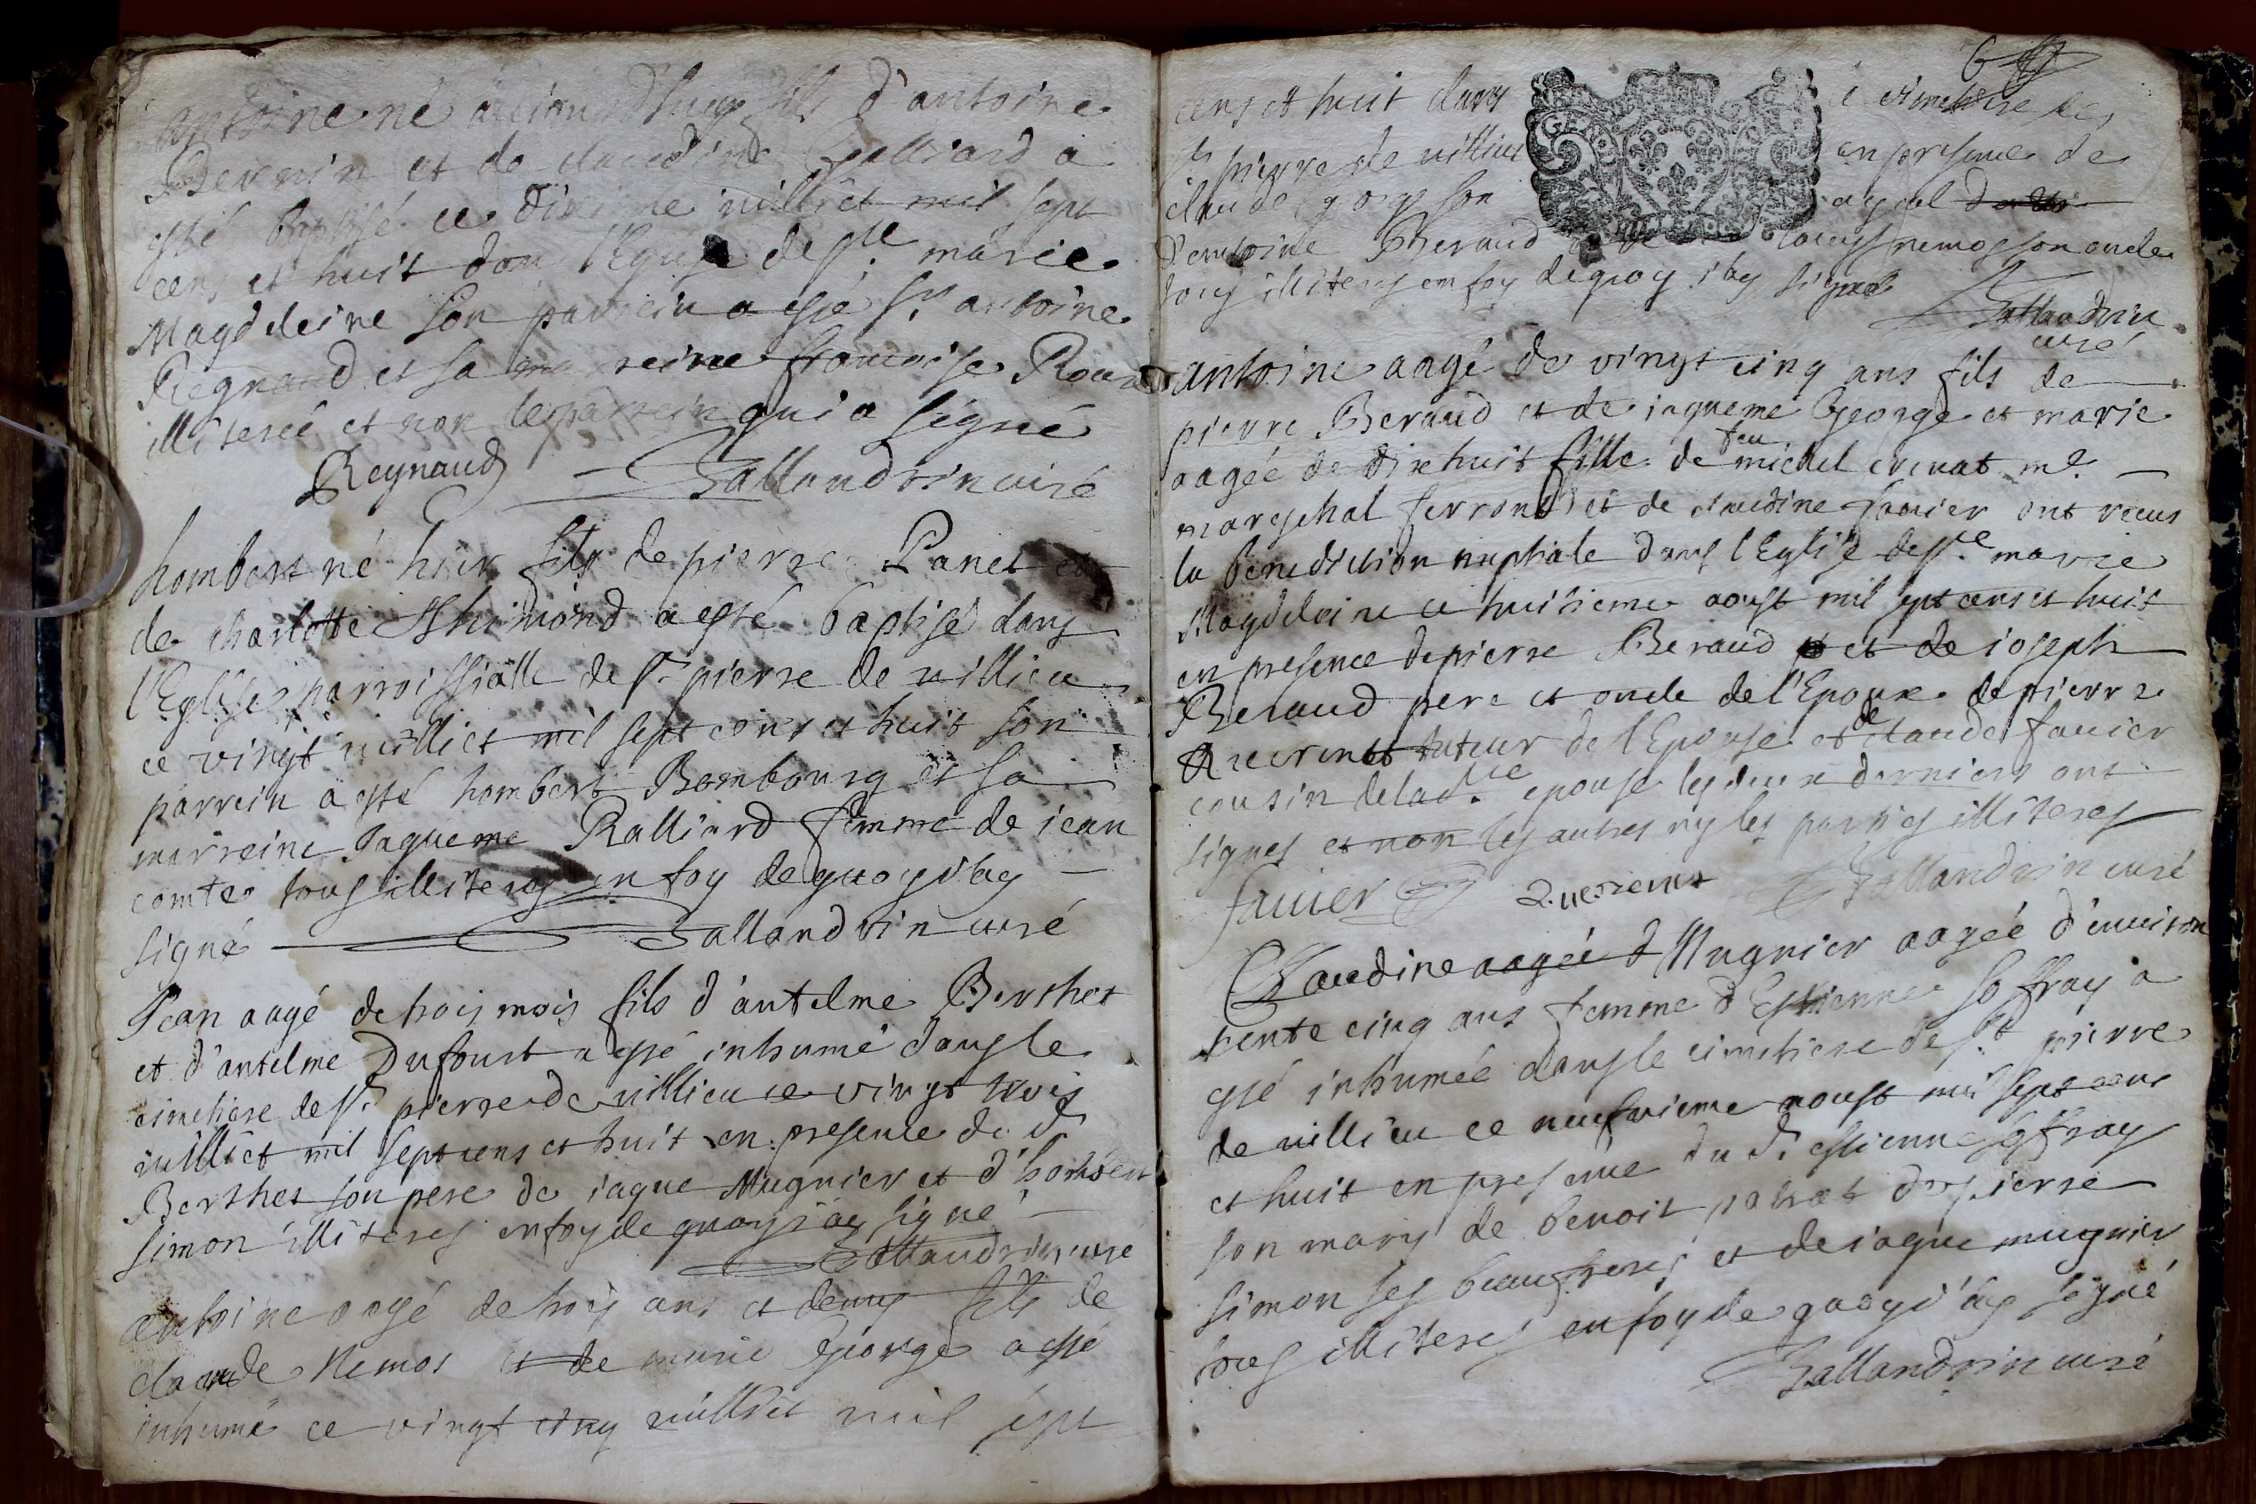 antoine né fils d'antoine
Bernin et de claudine Galliard a
esté baptisé ce dixieme iuilliet mil sept
cens et huit dans l'Eglise de ste marie
Magdeleine son parrein a esté sr antoine
Regnaud et sa marreine francoise
illiteree et non le parrein qui a signé
Reynaud Ballandrin curé
hombert né hier fils de pierre Panet et
de charlotte a esté baptisé dans
l'Eglise parroissialle de st pierre de villieu
ce vingt iuilliet mil sept cens et huit son
parrein a esté hombert Bombourg et sa
marreine Jaqueme Ralliard femme de iean
comte tous illiteres en foy de quoy i'ay
signé Ballandrin curé
Jean aagé de trois mois fils d'antelme Berthet
et d'antelme Dufourt a esté inhumé dans le
cimetiere de st pierre de villieu ce vingt trois
iuilliet mil sept cens et huit en presence du dt
Berthet son pere de iaque Mugnier et d'hombert
simon illiteres en foy de quoy i'ay signé
Ballandrin curé
antoine aagé de trois ans et demy fils de
claude Nemos et de marie George a esté
inhumé ce vingt cinq iuilliet mil sept
6
cens et huit dans le cimetiere de
st pierre de villieu en presence de
claude son ayeul
d'antoine Beraud nemos son oncle
tous illiteres en foy de quoy i'ay signé
Ballandrin
curé
antoine aagé de vingt cinq ans fils de
pierre Beraud et de iaqueme George et marie
aagée de dixhuit fille de feu michel me
mareschal ferrand et de claudine fauier ont receus
la benediction nuptiale dans l'Eglise de ste marie
Magdeleine ce huitieme aoust mil sept cens et huit
en presence de pierre Beraud et de ioseph
Beraud pere et oncle de l'Epoux de pierre
tuteur de l'Epouse et de claude fauier
cousin de lad.te epouse les deux derniers ont
signes et non les autres ny les parties illiteres
fauier Ballandrin curé
Claudine aagée d Mugnier aagée d'environ
trente cinq ans femme d'Estienne Joffray a
esté inhumée dans le cimetiere de st pierre
de villieu ce neufvieme aoust mil sept cens
et huit en presence du dt estienne Joffray
son mary de benoit de pierre
simon ses beaufreres et de iaque mugnier
tous illiteres en foy de quoy i'ay signé
Ballandrin curé